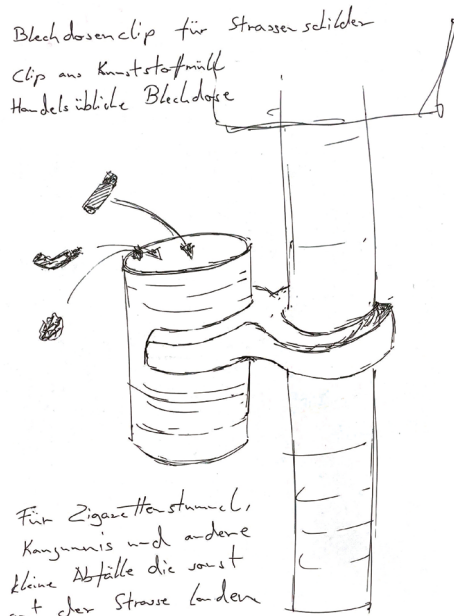 Blechdosenclip für Strassenschilder
Clip aus Kunststoffmüll
Handelsübliche Blechdose
Für Zigarettenstummel,
Kaugummis und andere
kleine Abfälle die sonst
auf der Strasse landen